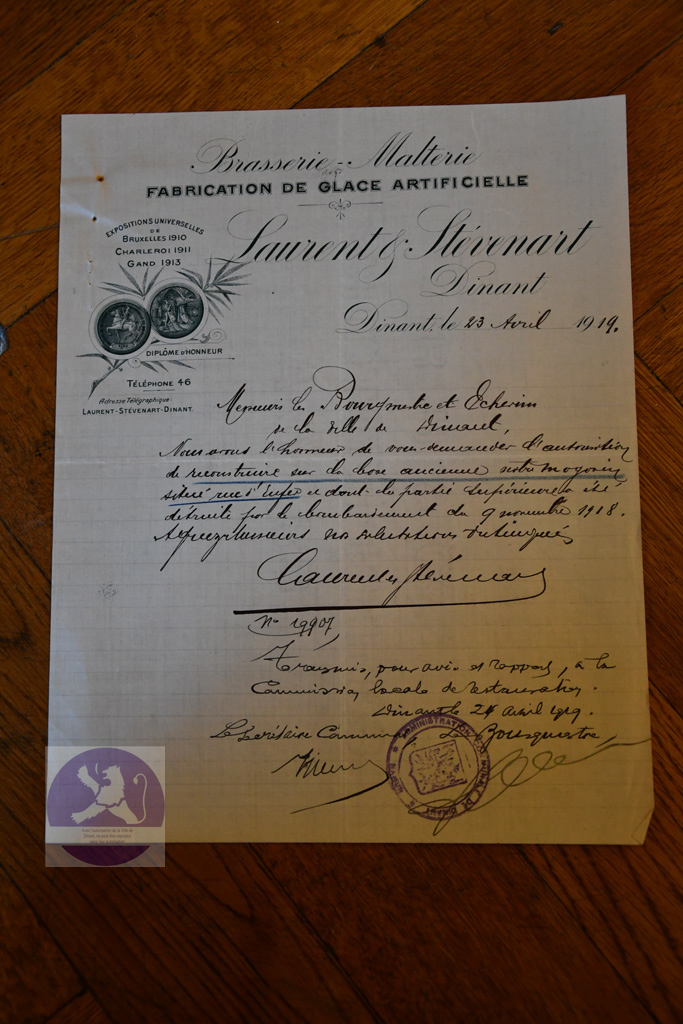 Brasserie - Malterie
FABRICATION DE GLACE ARTIFICIELLE
EXPOSITIONS UNIVERSELLES
DE
BRUXELLES 1910
CHARLEROI 1911
GAND 1913
Laurent & Stévenart
Dinant
Dinant, le 23 Avril 1919.
DIPLÔME D'HONNEUR
TÉLÉPHONE 46
Adresse Télégraphique:
LAURENT-STÉVENART-DINANT.
Messieurs les Bourgmestre et Echevins
de la Ville de Dinant,
Nous avons l'honneur de vous demander l'autorisation
de reconstruire sur la base ancienne notre magasin
situé rue d'Enfer et dont la partie supérieure a été
détruite par le bombardement du 9 novembre 1918.
Agréez Messieurs nos salutations distinguées
Laurent & Stévenart
No 19907
Transmis, pour avis et rapport, à la
Commission locale de restauration.
Dinant le 24 avril 1919.
Le Secrétaire Communal, Le Bourgmestre,
ADMINISTRATION COMMUNALE DE DINANT